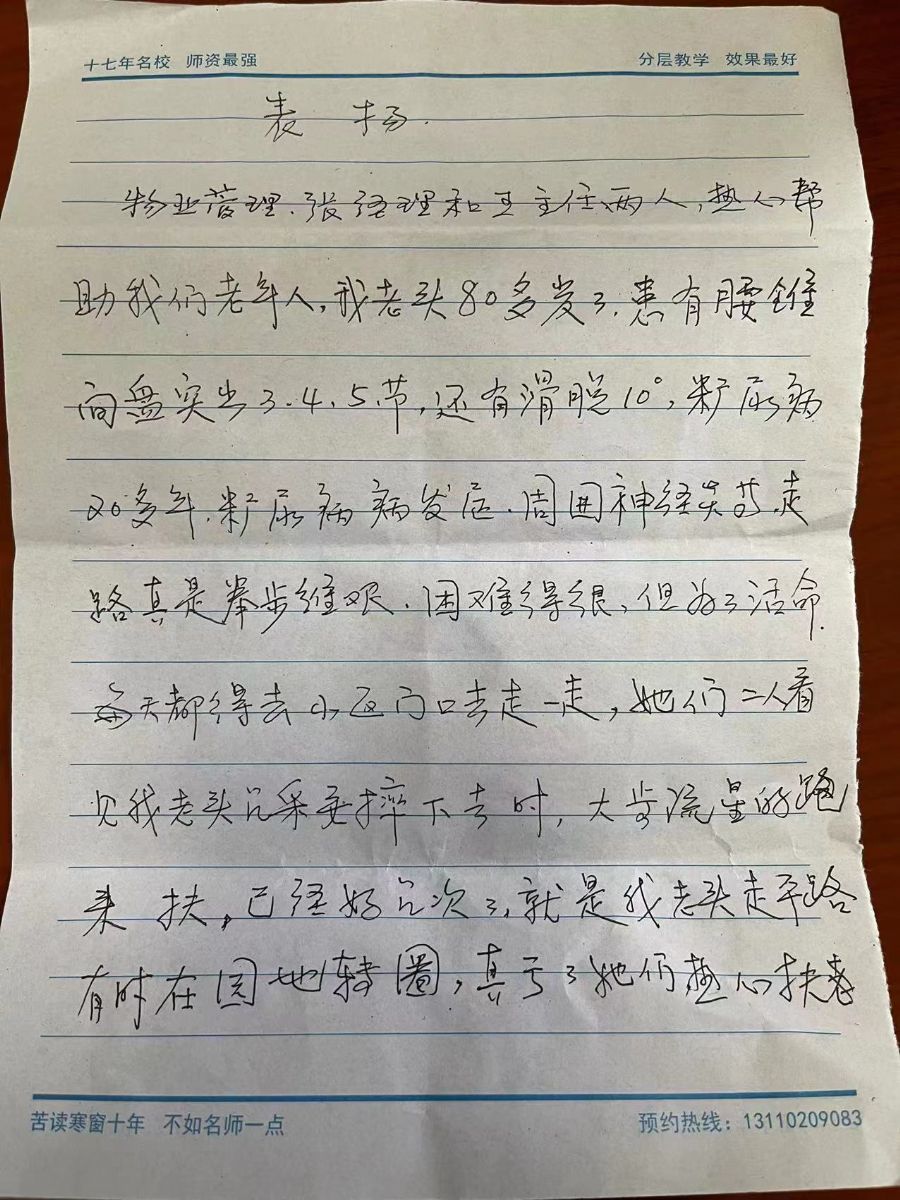 十七年名校 师资最强 分层教学 效果最好
表扬.
物业管理.张经理和王主任两人,热心帮
助我们老年人,我老头80多岁了.患有腰锥
间盘突出3.4.5.节,还有滑脱10°,糖尿病
20多年.糖尿病病发症.周围神经失节.走
路真是举步维艰.困难得很,但为了活命.
每天都得去小区门口去走一走,她们二人看
见我老头几乎要摔下去时,大步流星的跑
来扶,已经好几次了,就是我老头走平路
有时在园地转圈,真亏了她们热心扶老
苦读寒窗十年 不如名师一点 预约热线:13110209083